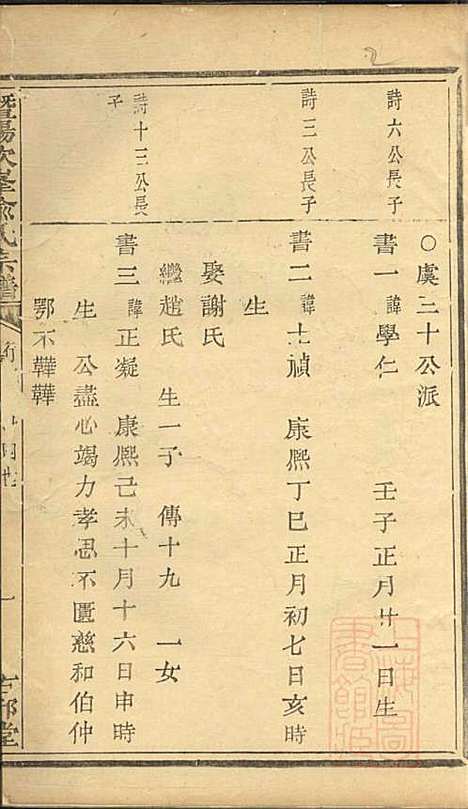 ○虞三十公派
詩六公長子
書一 諱學仁 壬子正月廿一日生
詩三公長子
書二 諱士禎 康熙丁巳正月初七日亥時
生
娶謝氏
繼趙氏 生一子 傳十九 一女
詩十三公長
子
書三 諱正凝 康熙己未十月十六日申時
生 公盡心竭力孝思不匱慈和伯仲
鄂不韡韡
暨陽次峯俞氏宗譜